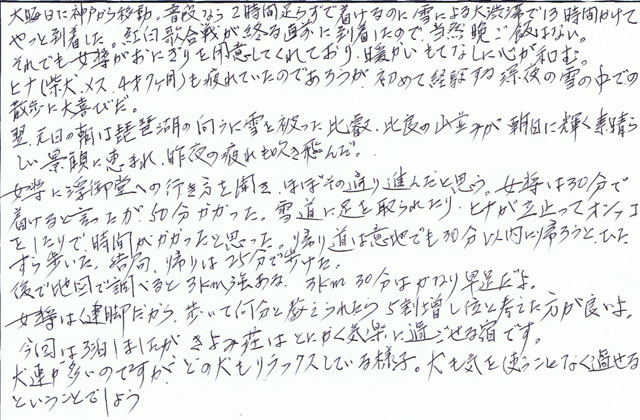 大晦日に神戸から移動。普段なら2時間足らずで着けるのに雪による大渋滞で13時間かけて
やっと到着した。紅白歌合戦が終る直前に到着したので、当然晩ご飯はない。
それでも女将がおにぎりを用意してくれており、暖かいもてなしに心が和む。
ヒナ(柴犬、メス、4才7ヶ月)も疲れていたのであろうが、初めて経験する深夜の雪の中での
散歩に大喜びだ。
翌、元日の朝は琵琶湖の向うに雪を被った比叡、比良の山並みが朝日に輝く素晴ら
しい景観に恵まれ、昨夜の疲れも吹き飛んだ。
女将に浮御堂への行き方を聞き、ほぼその通り進んだと思う。女将は30分で
着けると言ったが50分かかった。雪道に足を取られたり、ヒナが立止ってオシッコ
をしたりで時間がかかったと思った。帰り道は意地でも30分以内に帰ろうと、ひた
すら歩いた。結局、帰りは25分で歩けた。
後で地図で調べると3km強ある。3km 30分はかなり早足だよ。
女将は健脚だから、歩いて何分と教えられたら5割増し位と考えた方が良いよ。
今回は3泊しましたが きよみ荘はとにかく気楽に過ごせる宿です。
犬連が多いのですが、どの犬もリラックスしている様子。犬も気を使うことなく過せる
ということでしょう